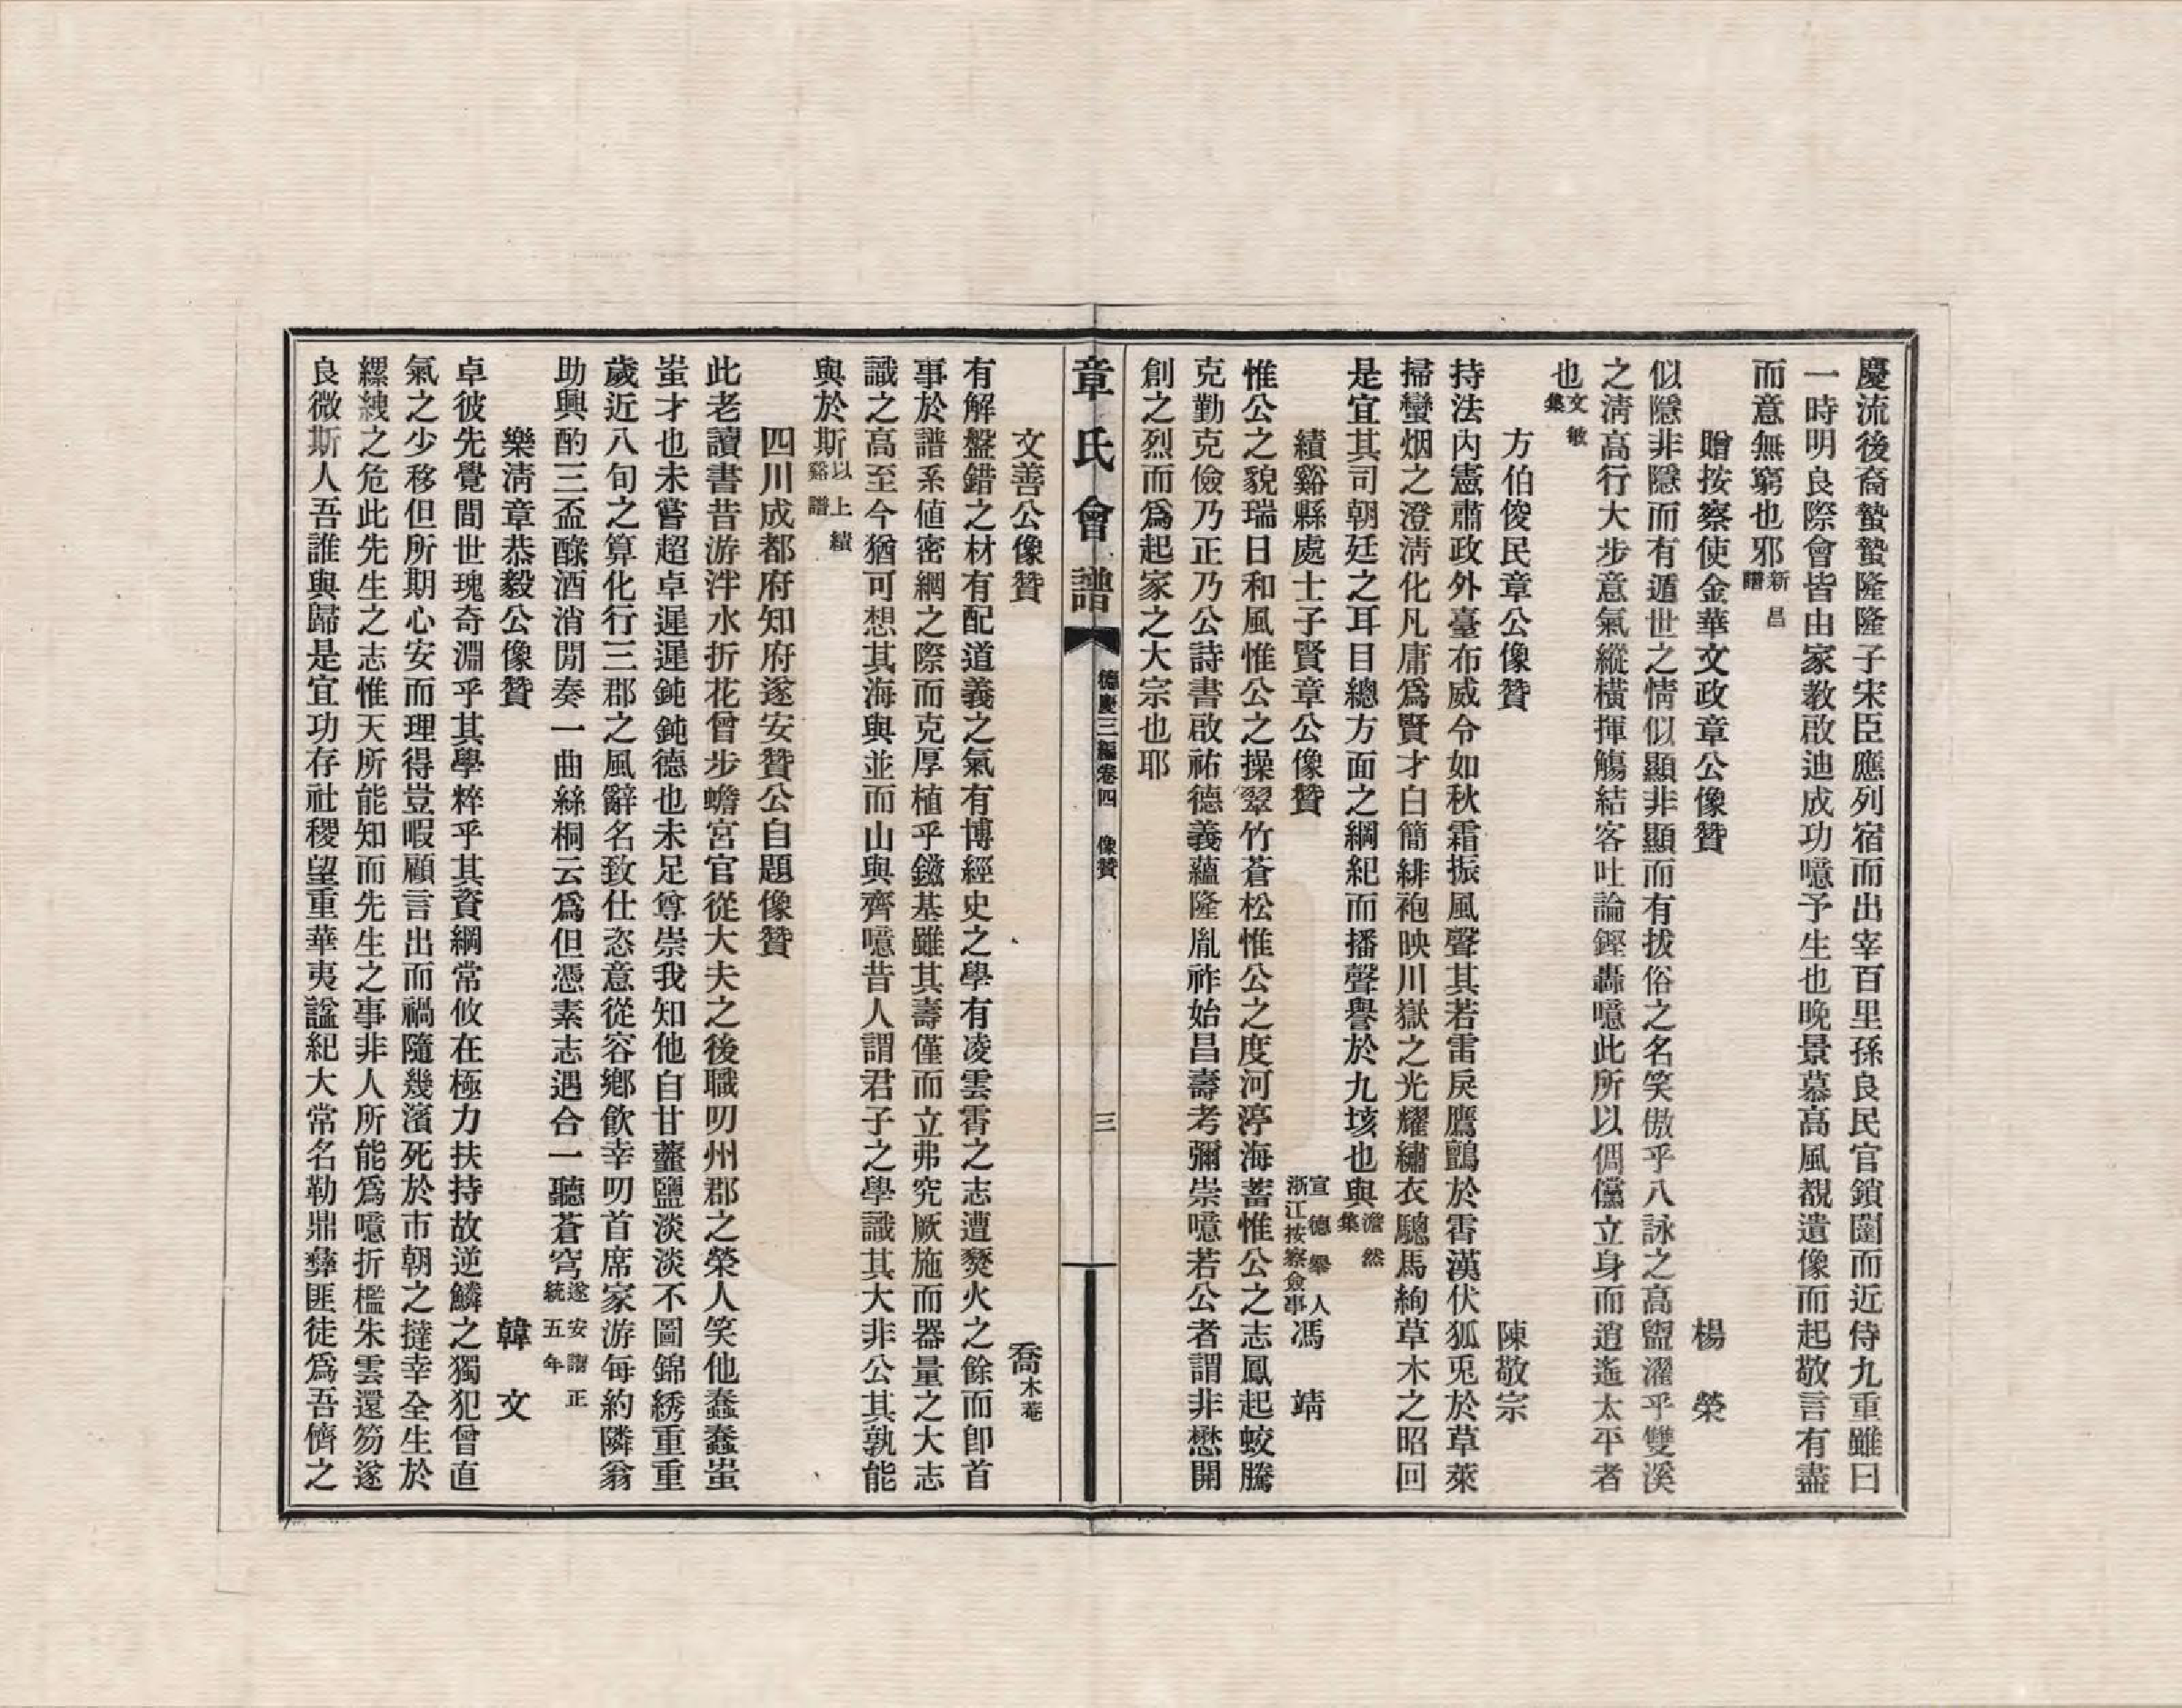 慶流後裔蟄蟄隆隆子宋臣應列宿而出宰百里孫良民官鎖闈而近侍九重雖曰
一時明良際會皆由家教啟迪成功噫予生也晚景慕高風覩遺像而起敬言有盡
而意無窮也邪新昌譜
贈按察使金華文政章公像贊 楊榮
似隱非隱而有遁世之情似顯非顯而有拔俗之名笑傲乎八詠之高盥濯乎雙溪
之清高行大步意氣縱橫揮觴結客吐論鏗轟噫此所以倜儻立身而逍遙太平者
也文敏集
方伯俊民章公像贊 陳敬宗
持法內憲肅政外臺布威令如秋霜振風聲其若雷戾鷹鸇於霄漢伏狐兎於草萊
掃蠻烟之澄清化凡庸爲賢才白簡緋袍映川嶽之光耀繡衣驄馬絢草木之昭回
是宜其司朝廷之耳目總方面之綱紀而播聲譽於九垓也與澹然集
績谿縣處士子賢章公像贊 宣德舉人浙江按察僉事馮靖
惟公之貌瑞日和風惟公之操翠竹蒼松惟公之度河渟海蓄惟公之志鳳起蛟騰
克勤克儉乃正乃公詩書啟祐德義蘊隆胤祚始昌壽考彌崇噫若公者謂非懋開
創之烈而爲起家之大宗也耶
章氏會譜 德慶三編卷四 像贊 三
文善公像贊 喬木菴
有解盤錯之材有配道義之氣有博經史之學有凌雲霄之志遭燹火之餘而卽首
事於譜系値密綱之際而克厚植乎鎡基雖其壽僅而立弗究厥施而器量之大志
識之高至今猶可想其海與並而山與齊噫昔人謂君子之學識其大非公其孰能
與於斯以上績谿譜
四川成都府知府遂安贊公自題像贊
此老讀書昔游泮水折花曾步蟾宮官從大夫之後職叨州郡之榮人笑他蠢蠢蚩
蚩才也未嘗超卓遲遲鈍鈍德也未足尊崇我知他自甘虀鹽淡淡不圖錦綉重重
歲近八旬之算化行三郡之風辭名致仕恣意從容鄉飲幸叨首席家游每約隣翁
助興酌三盃醁酒消閒奏一曲絲桐云爲但憑素志遇合一聽蒼穹遂安譜正統五年
樂清章恭毅公像贊 韓文
卓彼先覺間世瑰奇淵乎其學粹乎其資綱常攸在極力扶持故逆鱗之獨犯曾直
氣之少移但所期心安而理得豈暇顧言出而禍隨幾濱死於市朝之撻幸全生於
縲絏之危此先生之志惟天所能知而先生之事非人所能爲噫折檻朱雲還笏遂
良微斯人吾誰與歸是宜功存社稷望重華夷謚紀大常名勒鼎彝匪徒爲吾儕之